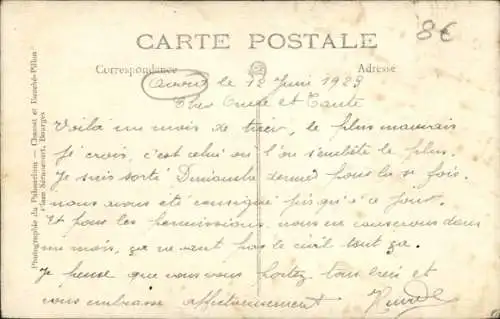 8€
CARTE POSTALE
Correspondance
Adresse
Photographie du Palmarium — Clausset et Bauché-Pillon
Bourges
le 12 Juin 1929
Cher Oncle et Tante
Voilà un mois de tirer, le plus mauvais
je crois, c'est celui où l'on s'embête le plus.
Je suis sorti Dimanche dernier pour la 1e fois.
nous avons été consigné jusqu'à ce jour.
Et pour les permissions, nous en causerons dans
un mois, ça ne vaut pas le civil tout ça.
Je pense que vous vous portez tous bien et
vous embrasse affectueusement